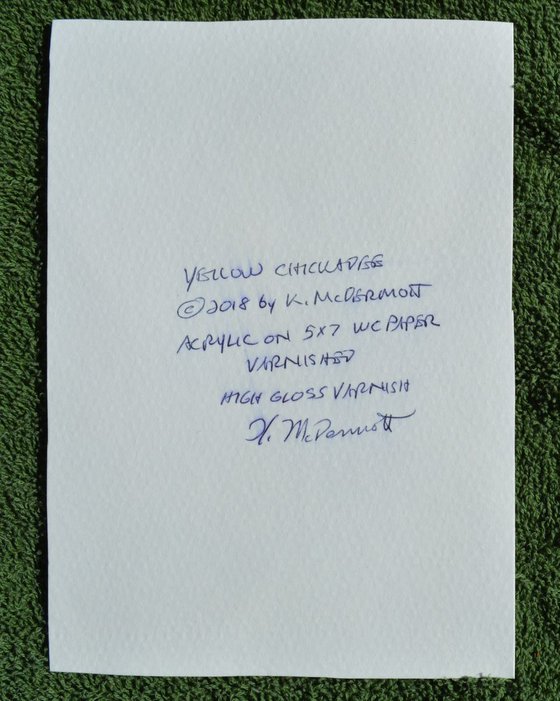 YELLOW CHICKADEE
© 2018 by K. McDERMOTT
ACRYLIC ON 5x7 WC PAPER
VARNISHED
HIGH GLOSS VARNISH
K. McDermott